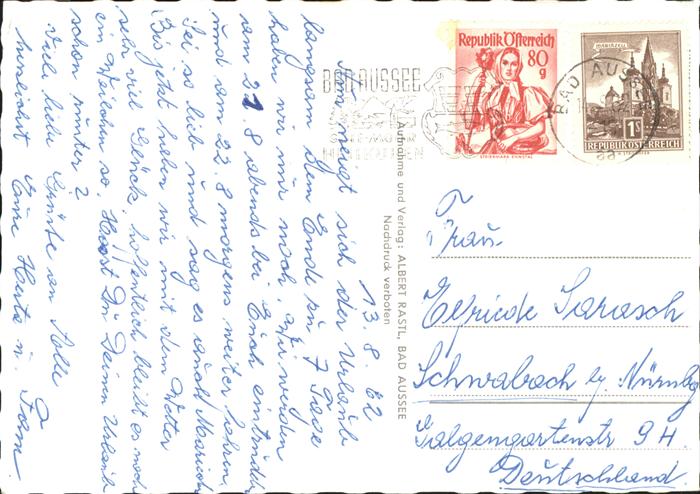 13.8.62
Nun neigt sich der Urlaub
langsam dem Ende zu, 7 Tage
haben wir nur noch. Wir werden
am 21.8 abends bei Euch eintrudeln
und am 22.8 morgens weiter fahren.
Sei so lieb und sag es auch
Bis jetzt haben wir mit dem Wetter
sehr viel Glück, hoffentlich bleibt es noch
ein Weilchen so. Hast Du Deinen Urlaub
schon hinter?
Viele liebe Grüße an Alle
Eure Herta u. Fam.
Republik Österreich
80
g
STEIERMARK ENNSTAL
MARIAZELL
1S
REPUBLIK ÖSTERREICH
BAD AUSSEE
BAD AUSSEE
Aufnahme und Verlag: ALBERT RASTL, BAD AUSSEE
Nachdruck verboten
Frau
Elfriede Sarasch
Schwabach by Nürnbg
Galgengartenstr 9H
Deutschland